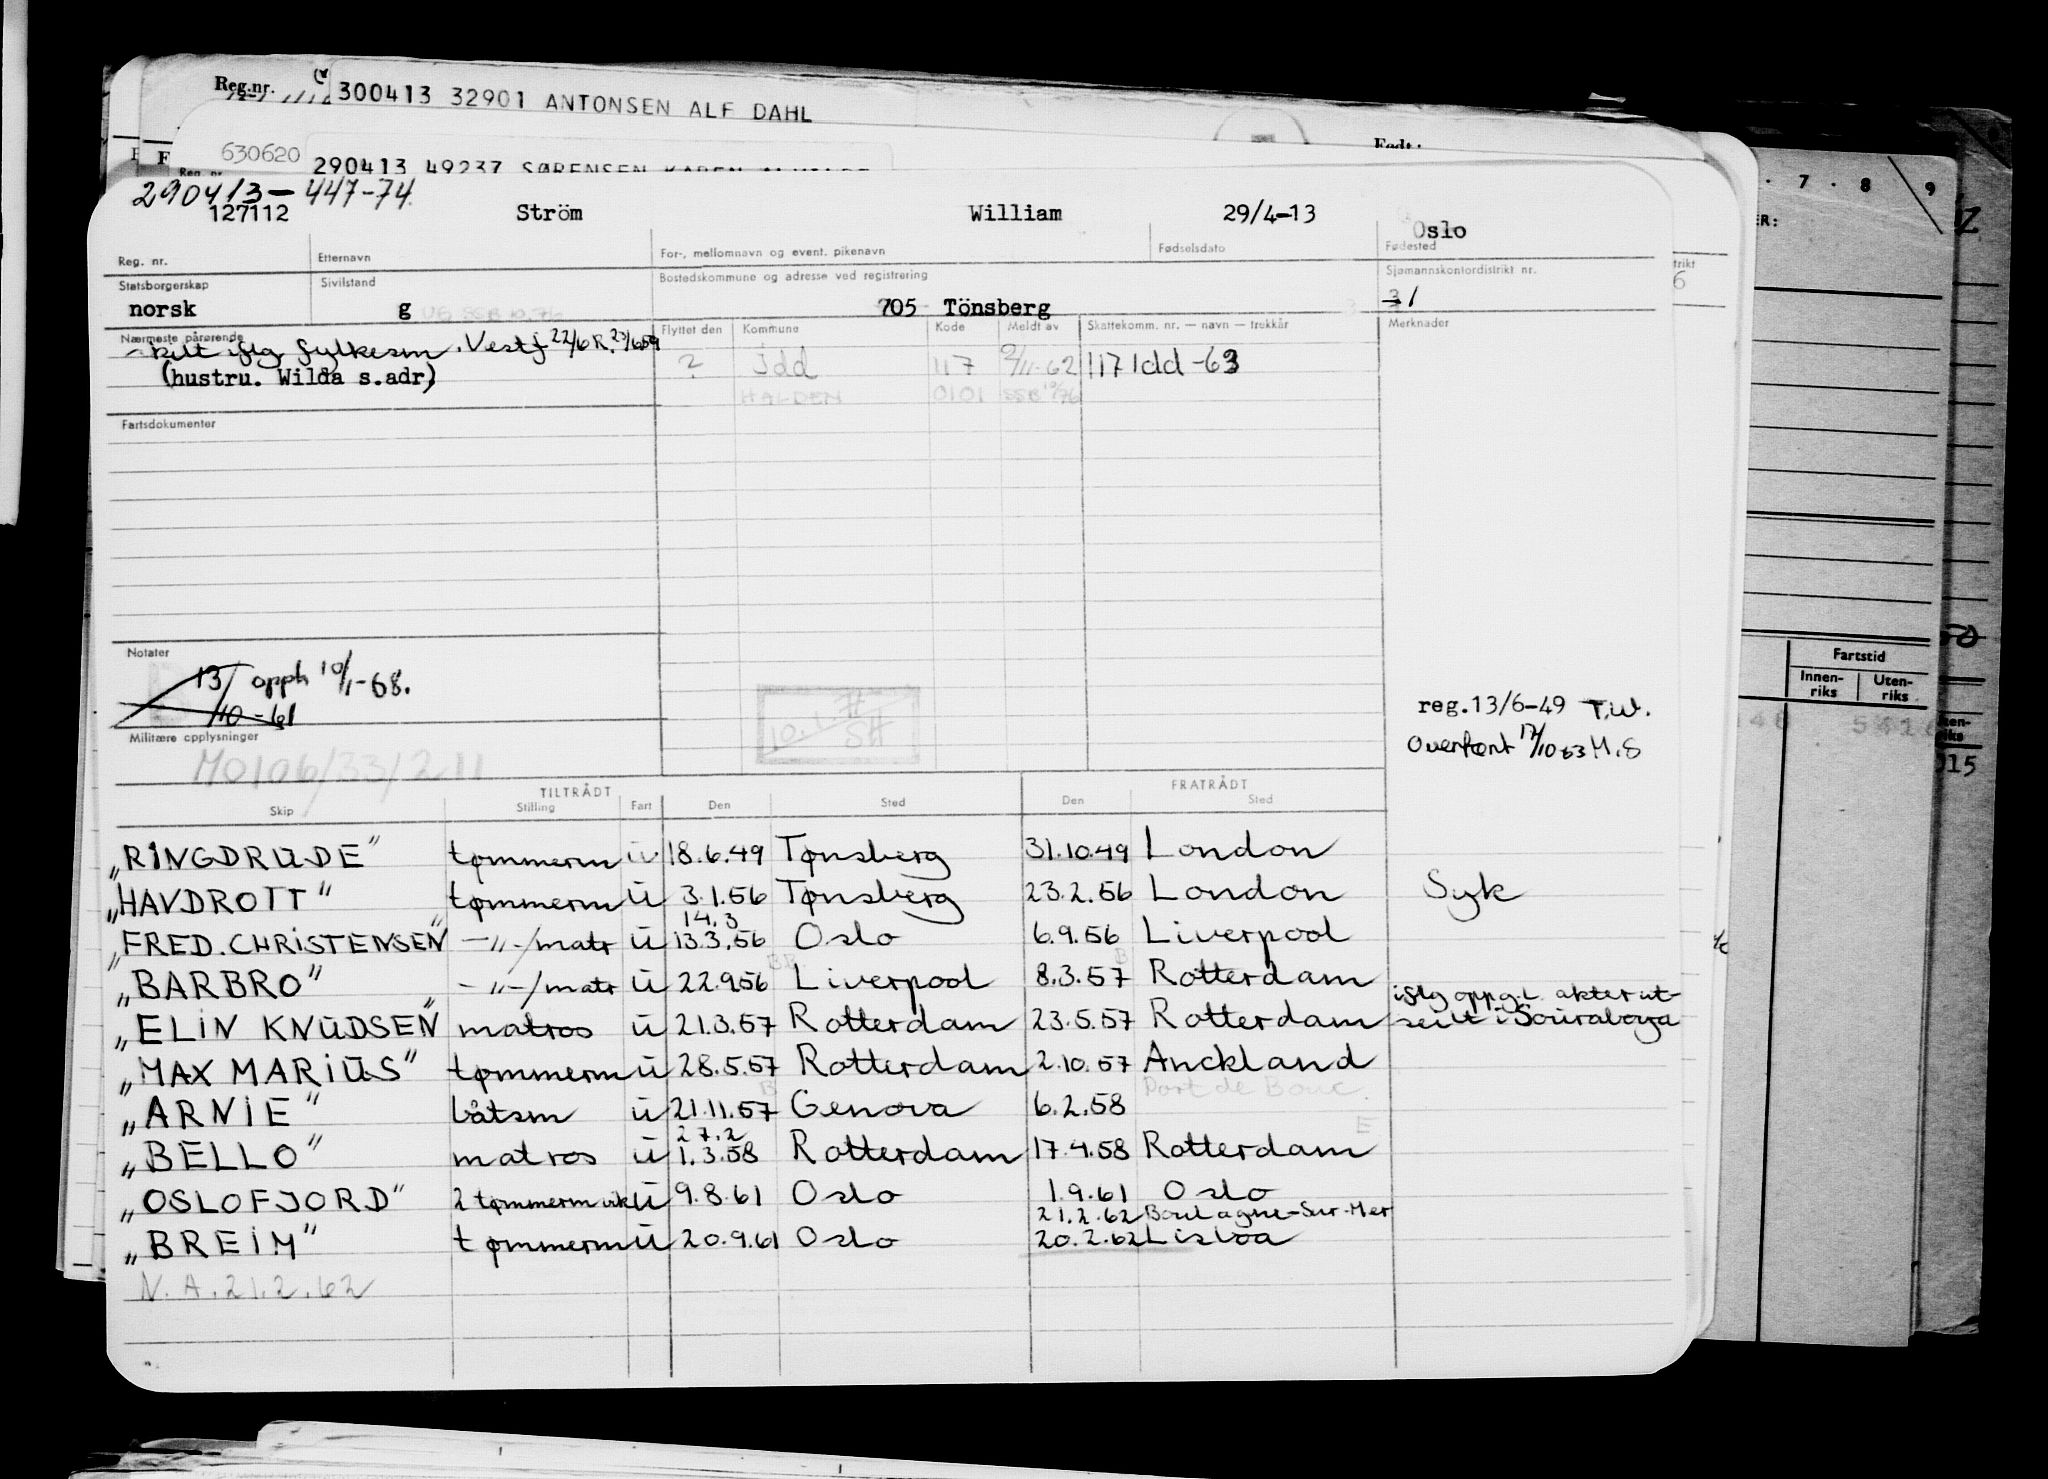 Reg.nr. 300413 32901 ANTONSEN ALF DAHL
Født:
630620 290413 49237 SØRENSEN KAREN
290413-447-74
127112 Ström William 29/4-13 Oslo
Reg. nr. Etternavn For-, mellomnavn og event. pikenavn Fødselsdato Fødested
Statsborgerskap Sivilstand Bostedskommune og adresse ved registrering Sjømannskontordistrikt nr.
norsk g 705 Tönsberg 1
Nærmeste pårørende Flyttet den Kommune Kode Meldt av Skattekomm. nr. — navn — trekkår Merknader
skilt iflg fylkesm. Vestf 22/6 R. 23/6 59
(hustru. Wilda s.adr)
? Idd 117 9/11-62 117 Idd -63
HALDEN 0101 SSB 10/76
Fartsdokumenter
Notater
13/10-61 opph 10/1-68.
10.1.77 SH
reg.13/6-49 T.W.
Overført 17/10 63 M.S
Militære opplysninger
M0106/33/211
TILTRÅDT FRATRÅDT
Skip Stilling Fart Den Sted Den Sted
"RINGDRUDE" tømmerm u 18.6.49 Tønsberg 31.10.49 London
"HAVDROTT" tømmerm u 3.1.56 Tønsberg 23.2.56 London Syk
14.3
"FRED. CHRISTENSEN" -"-/matr u 13.3.56 Oslo 6.9.56 Liverpool
"BARBRO" -"-/matr u 22.9.56 Liverpool 8.3.57 Rotterdam
iflg oppg. akterut-
"ELIN KNUDSEN" matros u 21.3.57 Rotterdam 23.5.57 Rotterdam seilt i Sourabaya
"MAX MARIUS" tømmerm u 28.5.57 Rotterdam 2.10.57 Auckland
Port de Bouc.
"ARNIE" båtsm u 21.11.57 Genova 6.2.58
27.2
"BELLO" matros u 1.3.58 Rotterdam 17.4.58 Rotterdam
"OSLOFJORD" 2 tømmerm vik u 9.8.61 Oslo 1.9.61 Oslo
21.2.62 Boulogne-Sur-Mer
"BREIM" tømmerm u 20.9.61 Oslo 20.2.62 Lisboa
N.A. 21.2.62
7 8 9
Fartstid
Innen-riks Uten-riks